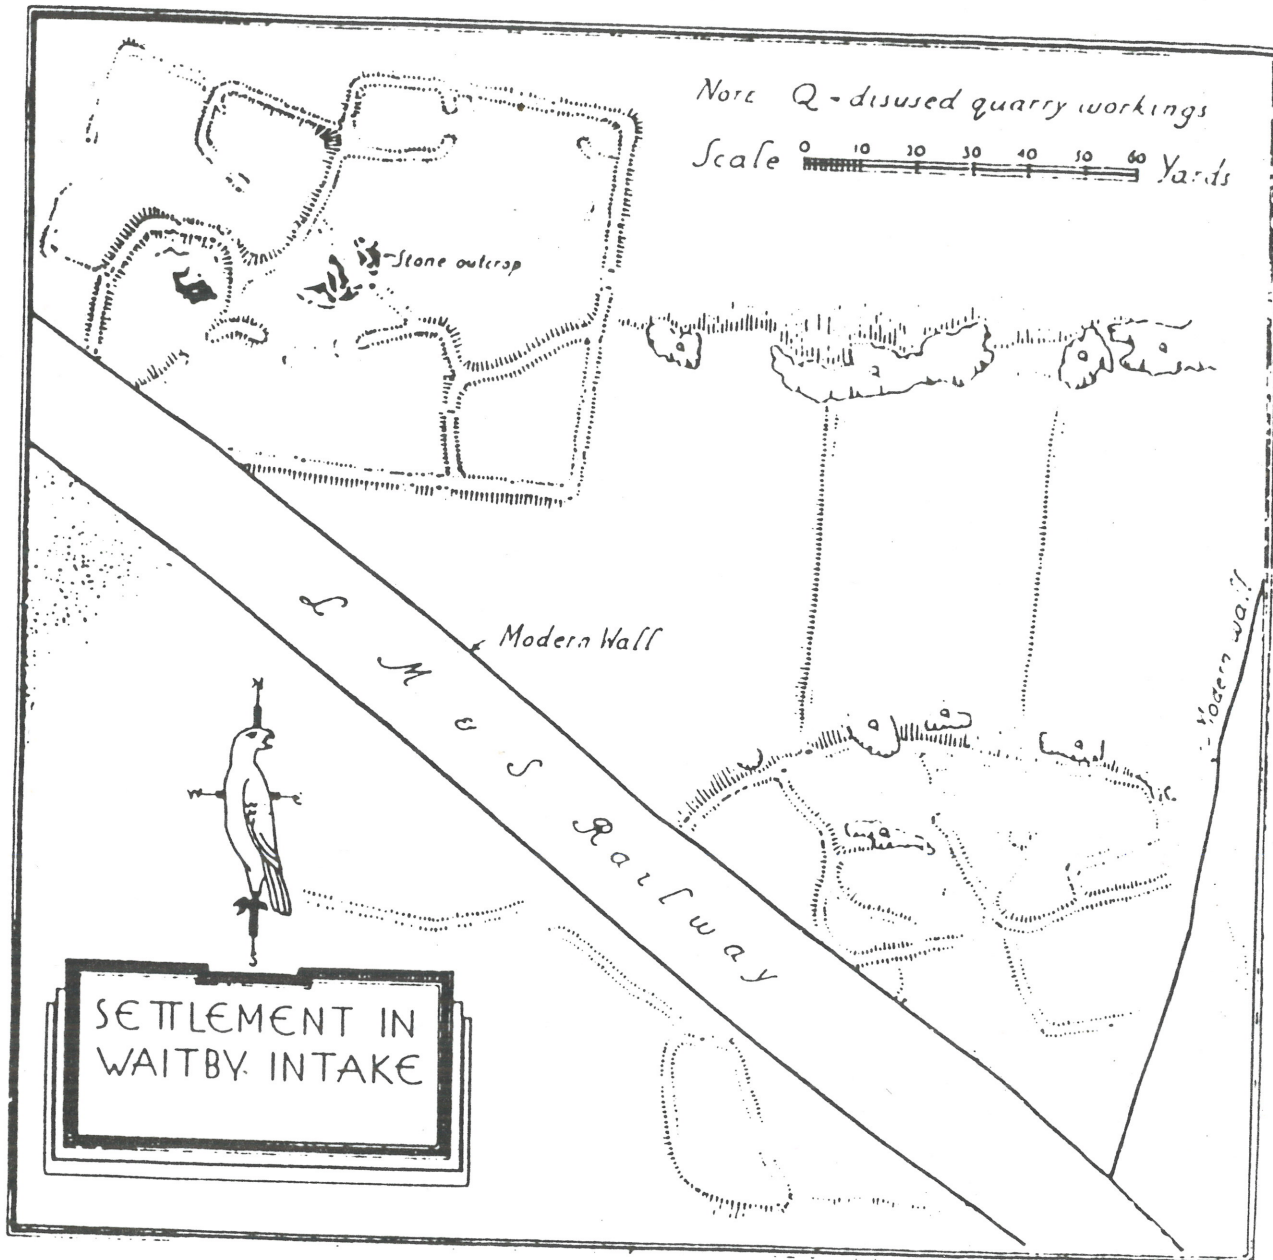 Note Q - disused quarry workings
Scale 0 10 20 30 40 50 60 Yards
Stone outcrop
Q
Q
Q
Q
L M & S Railway
Modern Wall
Modern wall
N
W E
S
Q
Q
Q
Q
SETTLEMENT IN
WAITBY INTAKE